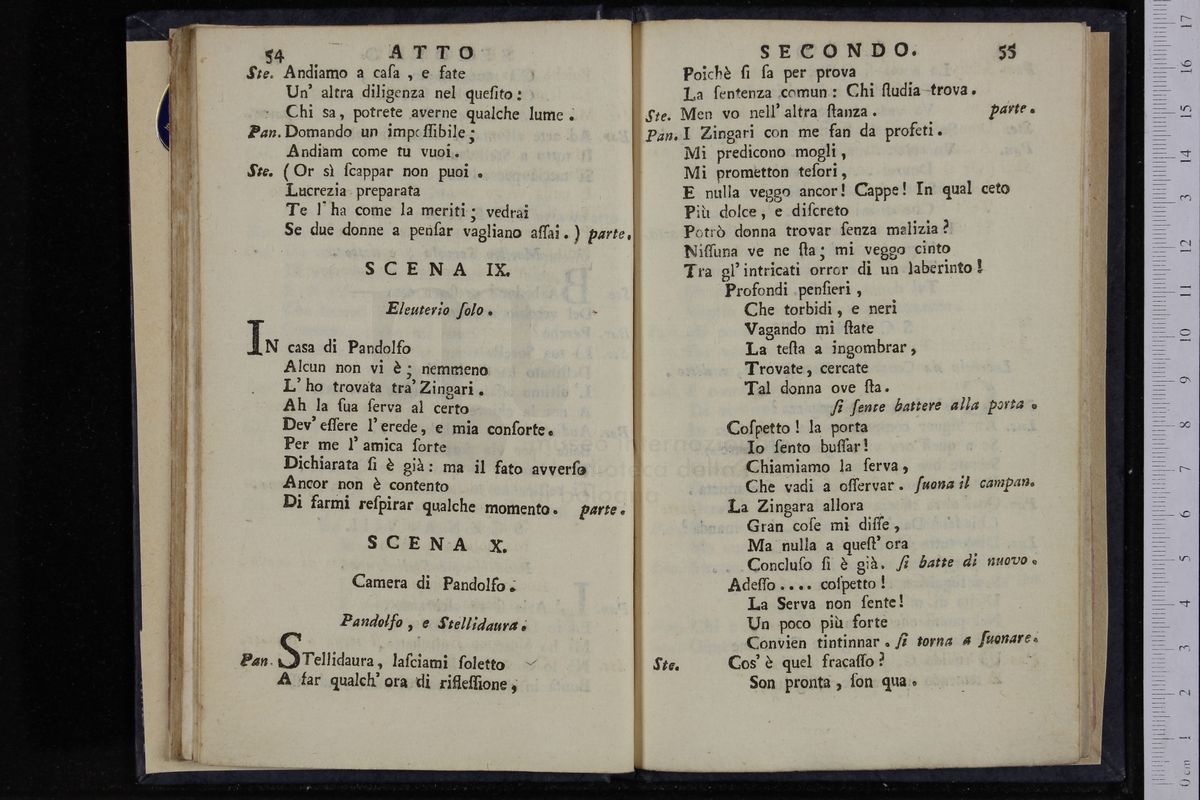 54 ATTO
Ste. Andiamo a caſa , e fate
Un' altra diligenza nel queſito :
Chi sa , potrete averne qualche lume .
Pan. Domando un impoſſibile ;
Andiam come tu vuoi .
Ste. ( Or sì ſcappar non puoi .
Lucrezia preparata
Te l'ha come la meriti ; vedrai
Se due donne a penſar vagliano aſſai . ) parte.
SCENA IX.
Eleuterio ſolo .
IN casa di Pandolfo
Alcun non vi è ; nemmeno
L' ho trovata tra' Zingari .
Ah la ſua ſerva al certo
Dev' eſſere l'erede, e mia conforte.
Per me l' amica ſorte
Dichiarata ſi è già : ma il fato avverſo
Ancor non è contento
Di farmi reſpirar qualche momento . parte .
SCENA X.
Camera di Pandolfo .
Pandolfo , e Stellidaura .
Pan. STellidaura, laſciami ſoletto
A far qualch' ora di rifleſſione ,
SECONDO. 55
Poichè ſi ſa per prova
La ſentenza comun : Chi ſtudia trova .
Ste. Men vo nell' altra ſtanza . parte .
Pan. I Zingari con me fan da profeti .
Mi predicono mogli ,
Mi prometton teſori ,
E nulla veggo ancor ! Cappe ! In qual ceto
Più dolce , e diſcreto
Potrò donna trovar ſenza malizia ?
Niſſuna ve ne ſta ; mi veggo cinto
Tra gl' intricati orror di un laberinto !
Profondi penſieri ,
Che torbidi , e neri
Vagando mi ſtate
La teſta a ingombrar ,
Trovate , cercate
Tal donna ove ſta .
ſi ſente battere alla porta .
Coſpetto ! la porta
Io ſento buſſar !
Chiamiamo la ſerva ,
Che vadi a oſſervar . ſuona il campan.
La Zingara allora
Gran coſe mi diſſe ,
Ma nulla a queſt' ora
Concluſo ſi è già . ſi batte di nuovo .
Adeſſo .... coſpetto !
La Serva non ſente !
Un poco più forte
Convien tintinnar . ſi torna a ſuonare .
Ste. Cos' è quel fracaſſo ?
Son pronta , ſon qua .